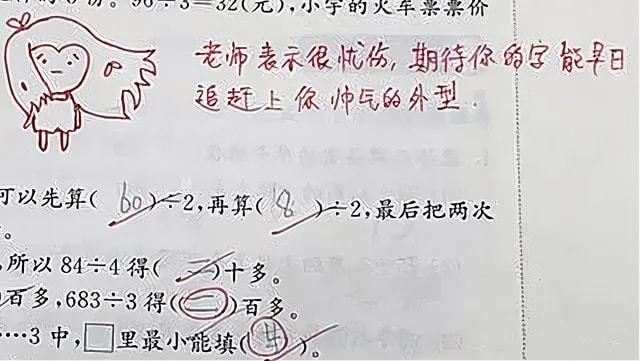 份。96÷3=32(元),小宇的火车票票价
老师表示很忧伤,期待你的字能早日
追赶上你帅气的外型.
可以先算( 60 )÷2,再算( 8 )÷2,最后把两次
。
所以84÷4得( 二 )十多。
百多,683÷3得( 二 )百多。
……3中,□里最小能填( 4 )。